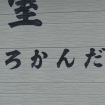 室
ろかんだ